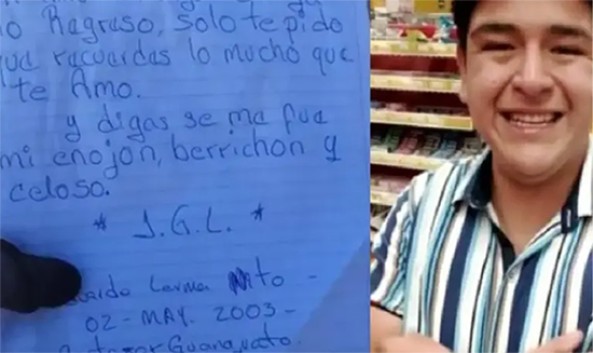 no Regreso, solo te pido
que recuerdas lo mucho que
te Amo.
y digas se me fue
mi enojon, berrichon y
celoso.
* J.G.L. *
Lerma
02 - MAY. 2003 -
Guanajuato.